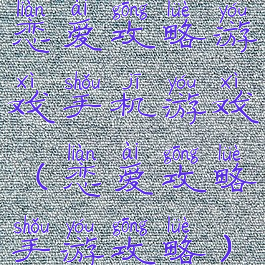 liàn ài gōng lüè yóu
恋爱攻略游
xì shǒu jī yóu xì
戏手机游戏
liàn ài gōng lüè
(恋爱攻略
shǒu yóu gōng lüè
手游攻略)